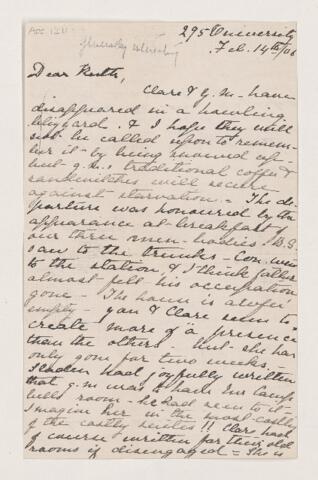 295 University
Feb. 14th/06
Dear Ruth,
Clare & G. M. have
disappeared in a howling
blizzard. & I hope they will
not be called upon to remem-
ber it - by being snowed up -
but G. M.'s traditional coffee &
sandwiches will secure
against starvation. = The de-
parture was honoured by the
appearance at breakfast of
our three men-bodies. B.G.
saw to the trunks - Con. went
to the station, & I think
almost felt his occupation
gone - The house is awful
empty - you & Clare seem to
create more of a "presence"
than the others - but she has
only gone for two weeks.
had joyfully written
that G. M. was to have
room - he had seen to it
I imagine her in the most costly
of the costly suites!! Clare had
of course written for their old
rooms if disengaged = This is